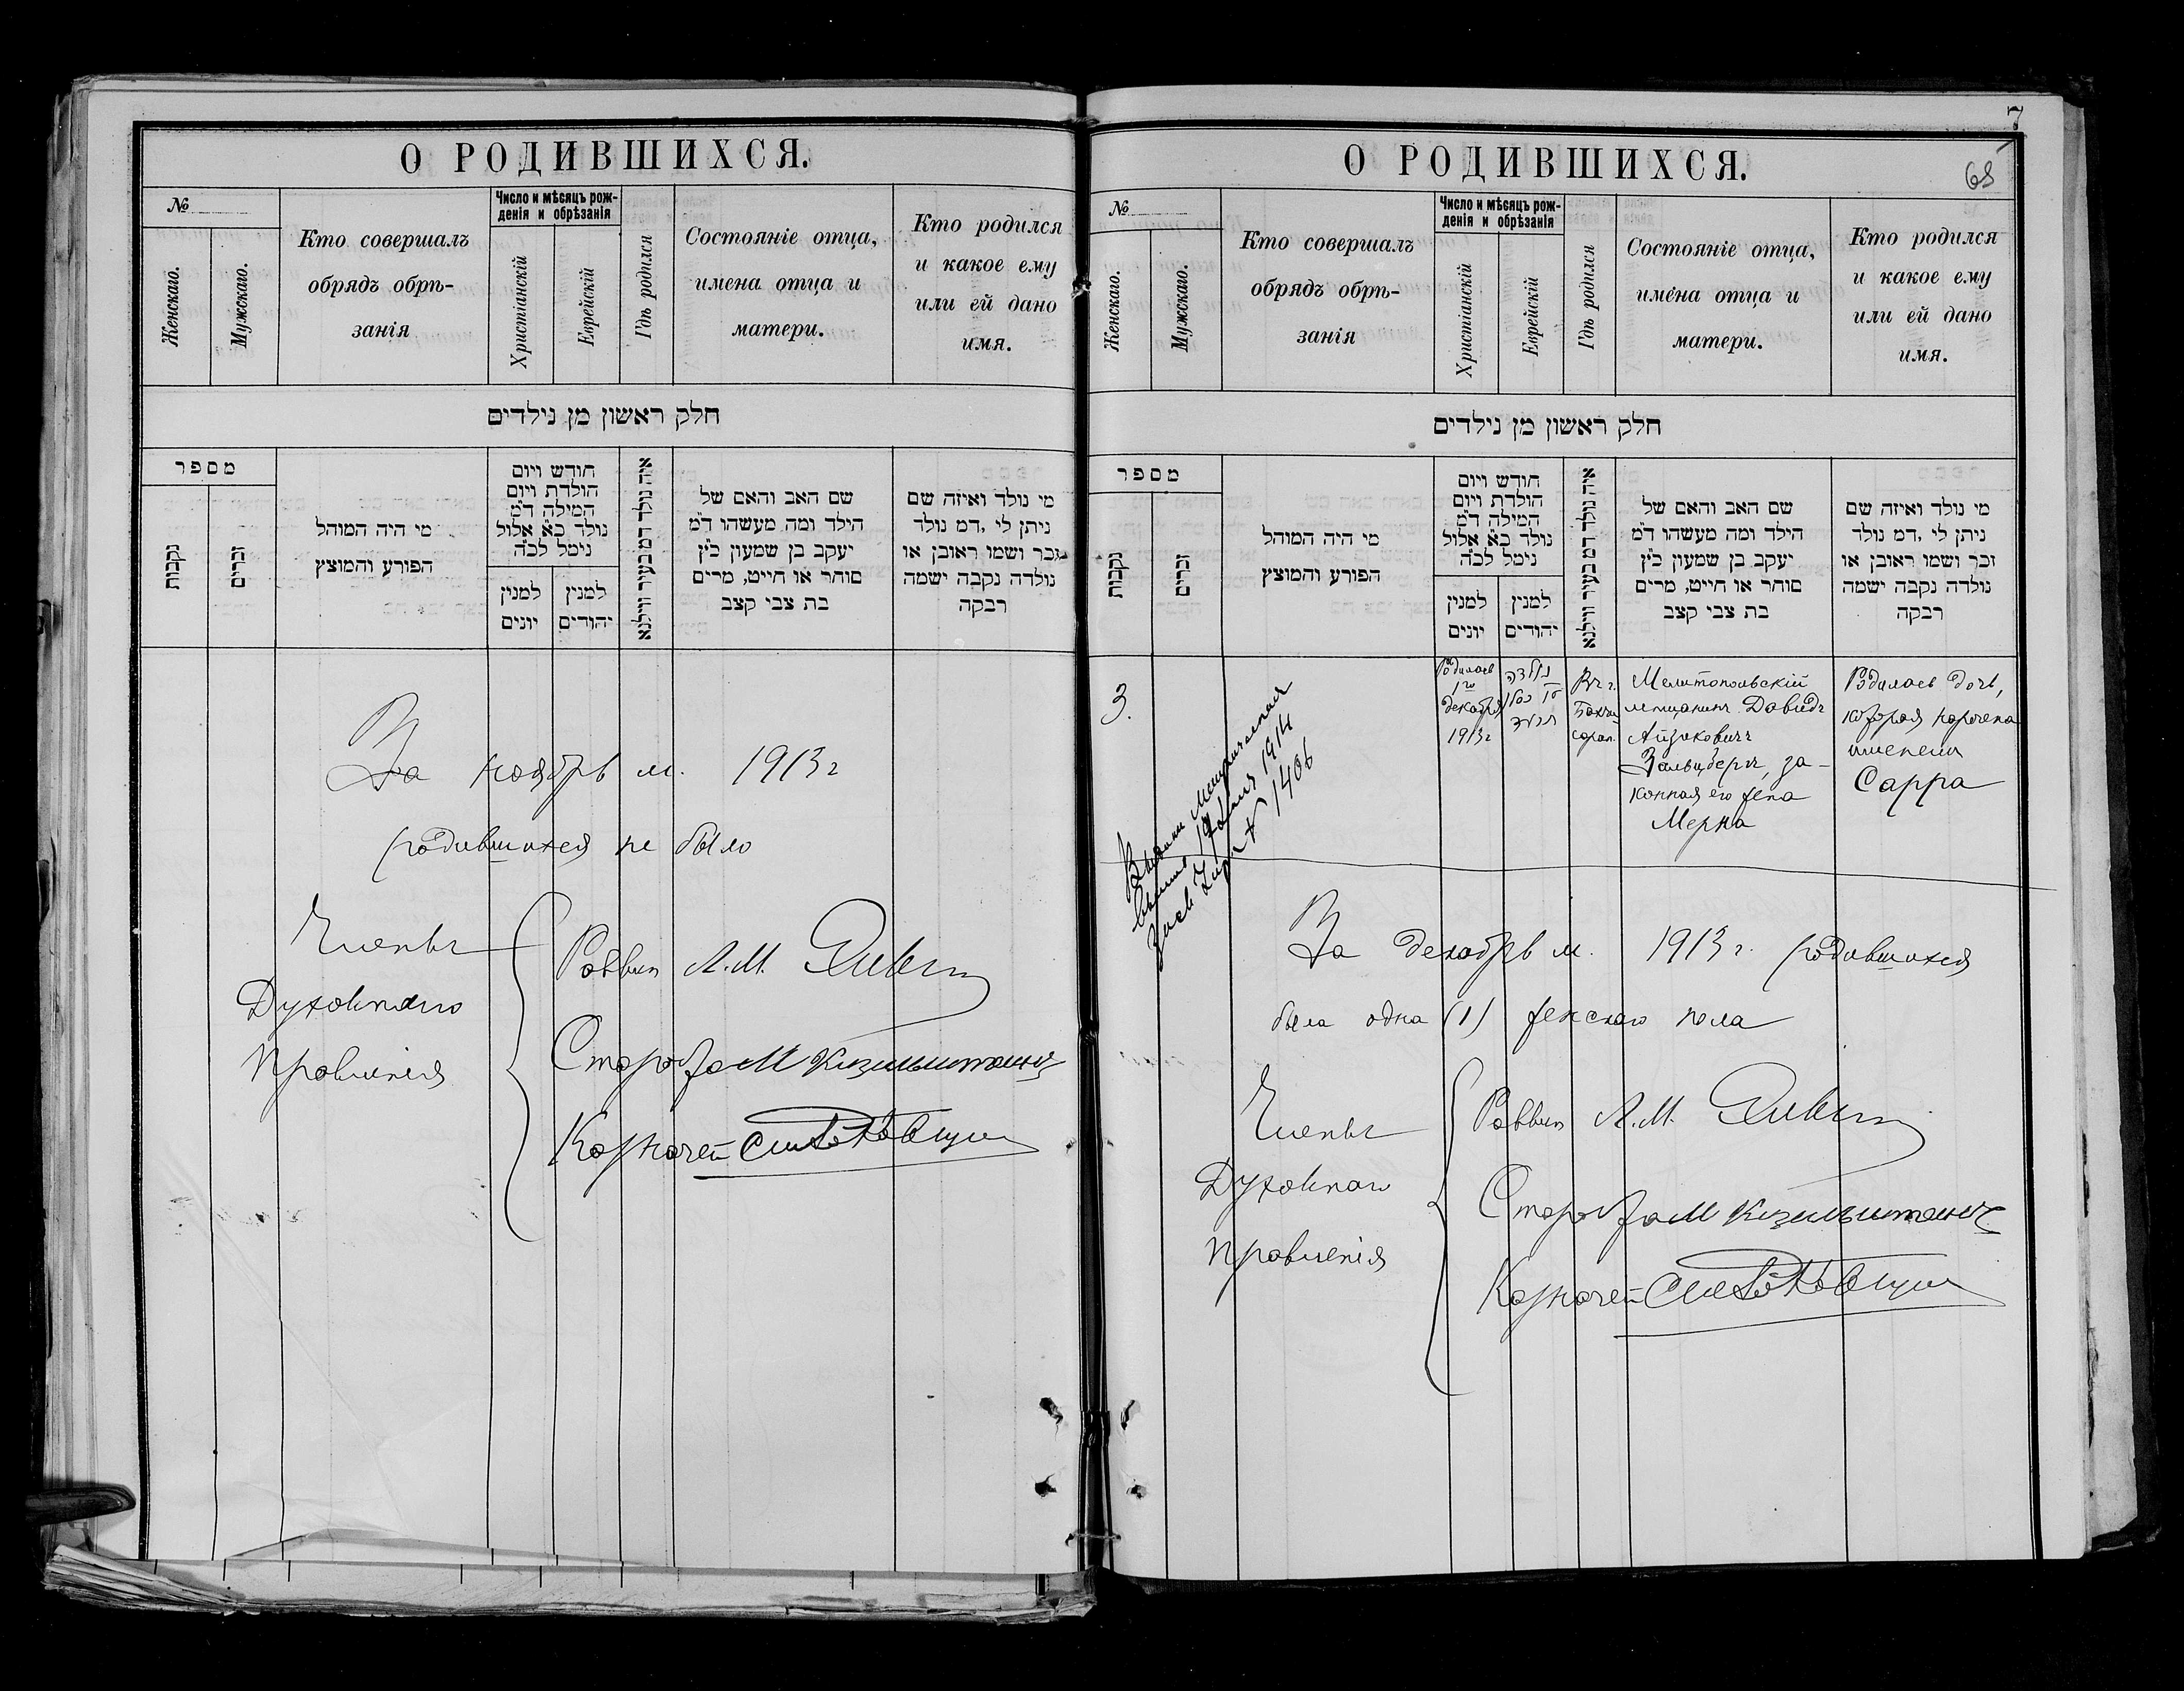 О РОДИВШИХСЯ.
№
Женскаго.
Мужскаго.
Кто совершалъ
обрядъ обрѣ-
занія
Число и мѣсяцъ рож-
денія и обрѣзанія
Христіанскій
Еврейскій
Гдѣ родился
Состояніе отца,
имена отца и
матери.
Кто родился
и какое ему
или ей дано
имя.
חלק ראשון מן נילדים
מספר
נקבות
זכרים
מי היה המוהל
הפורע והמוצץ
חודש ויום
הולדת ויום
המילה ד״מ
נולד כ״א אלול
נימל לכ״ה
למנין
יונים
למנין
יהודים
איה נולד דמ בעיר ווילנא
שם האב והאם של
הילד ומה מעשהו ד״מ
יעקב בן שמעון כ״ץ
סוחר או חייט, מרים
בת צבי קצב
מי נולד ואיזה שם
ניתן לי ,דמ נולד
זכר ושמו ראובן או
נולדה נקבה ישמה
רבקה
За ноябрь м. 1913 г
родившихся не было
Члены
Духовнаго
Правленія
Раввин А.М.
Староста М Кизильштейнъ
Казначей
7
68
О РОДИВШИХСЯ.
№
Женскаго.
Мужскаго.
Кто совершалъ
обрядъ обрѣ-
занія
Число и мѣсяцъ рож-
денія и обрѣзанія
Христіанскій
Еврейскій
Гдѣ родился
Состояніе отца,
имена отца и
матери.
Кто родился
и какое ему
или ей дано
имя.
חלק ראשון מן נילדים
מספר
נקבות
זכרים
מי היה המוהל
הפורע והמוצץ
חודש ויום
הולדת ויום
המילה ד״מ
נולד כ״א אלול
נימל לכ״ה
למנין
יונים
למנין
יהודים
איה נולד דמ בעיר ווילנא
שם האב והאם של
הילד ומה מעשהו ד״מ
יעקב בן שמעון כ״ץ
סוחר או חייט, מרים
בת צבי קצב
מי נולד ואיזה שם
ניתן לי ,דמ נולד
זכר ושמו ראובן או
נולדה נקבה ישמה
רבקה
3.
Родилась
1го
декабря
1913 г
נולדה
Въ г.
Бахчи-
сарап.
Мелитопольскій
мещанинъ Давидъ
Айзиковичъ
Зальцбергъ, за-
конная его жена
Мерка
Родилась дочь,
которая наречена
именемъ
Сарра
метрическая
1914
№ 1406
За декабрь м. 1913 г. родившихся
была одна (1) женскаго пола
Члены
Духовнаго
Правленія
Раввин А.М.
Староста М Кизильштейнъ
Казначей